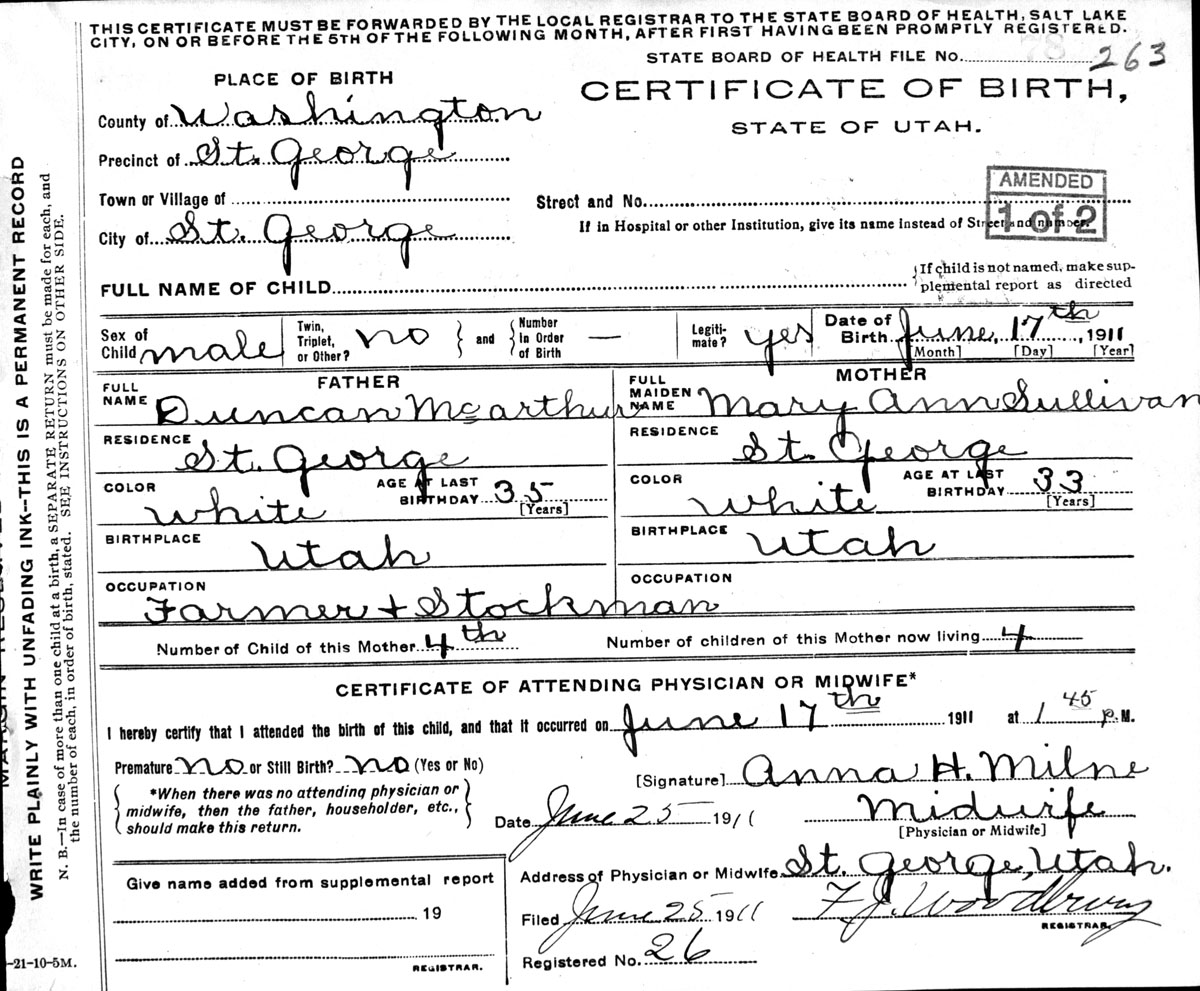 THIS CERTIFICATE MUST BE FORWARDED BY THE LOCAL REGISTRAR TO THE STATE BOARD OF HEALTH, SALT LAKE
CITY, ON OR BEFORE THE 5TH OF THE FOLLOWING MONTH, AFTER FIRST HAVING BEEN PROMPTLY REGISTERED.
STATE BOARD OF HEALTH FILE No. 78 263
PLACE OF BIRTH
CERTIFICATE OF BIRTH,
STATE OF UTAH.
County of Washington
Precinct of St. George
Town or Village of
Street and No.
AMENDED
1 of 2
City of St. George
If in Hospital or other Institution, give its name instead of Street and number.
FULL NAME OF CHILD
{If child is not named, make sup-
plemental report as directed
Sex of Child male
Twin, Triplet, or Other? no
} and {
Number in Order of Birth —
Legiti-mate? yes
Date of Birth June, 17th, 1911
[Month] [Day] [Year]
FATHER
MOTHER
FULL NAME Duncan McArthur
FULL MAIDEN NAME Mary Ann Sullivan
RESIDENCE St. George
RESIDENCE St. George
COLOR White
AGE AT LAST BIRTHDAY 35 [Years]
COLOR White
AGE AT LAST BIRTHDAY 33 [Years]
BIRTHPLACE Utah
BIRTHPLACE Utah
OCCUPATION Farmer + Stockman
OCCUPATION
Number of Child of this Mother 4th
Number of children of this Mother now living 4
CERTIFICATE OF ATTENDING PHYSICIAN OR MIDWIFE*
I hereby certify that I attended the birth of this child, and that it occurred on June 17th 1911 at 1 45 P.M.
Premature no or Still Birth? no (Yes or No)
[Signature] Anna H. Milne
*When there was no attending physician or
midwife, then the father, householder, etc.,
should make this return.
Date June 25 1911
Midwife
[Physician or Midwife]
Give name added from supplemental report
19
REGISTRAR.
Address of Physician or Midwife St. George, Utah.
Filed June 25 1911
F. J. Woodbury
REGISTRAR.
Registered No. 26
-21-10-5M.
WRITE PLAINLY WITH UNFADING INK--THIS IS A PERMANENT RECORD
N. B.—In case of more than one child at a birth, a SEPARATE RETURN must be made for each, and
the number of each, in order of birth, stated. SEE INSTRUCTIONS ON OTHER SIDE.